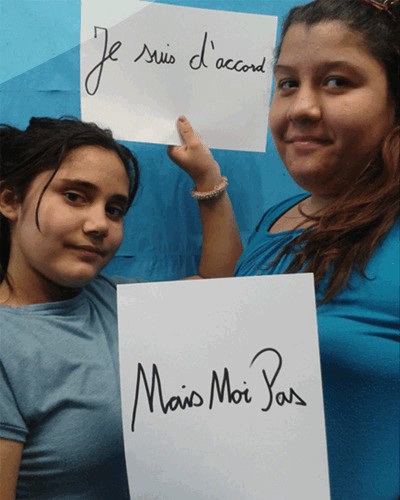 Je suis d'accord
Mais Moi Pas